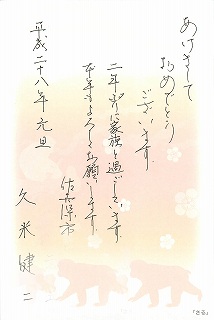 あけまして
おめでとう
ございます
二年ぶりに家族と過ごしています
本年もよろしくお願いします
佐世保市
久米健二
平成二十八年元旦